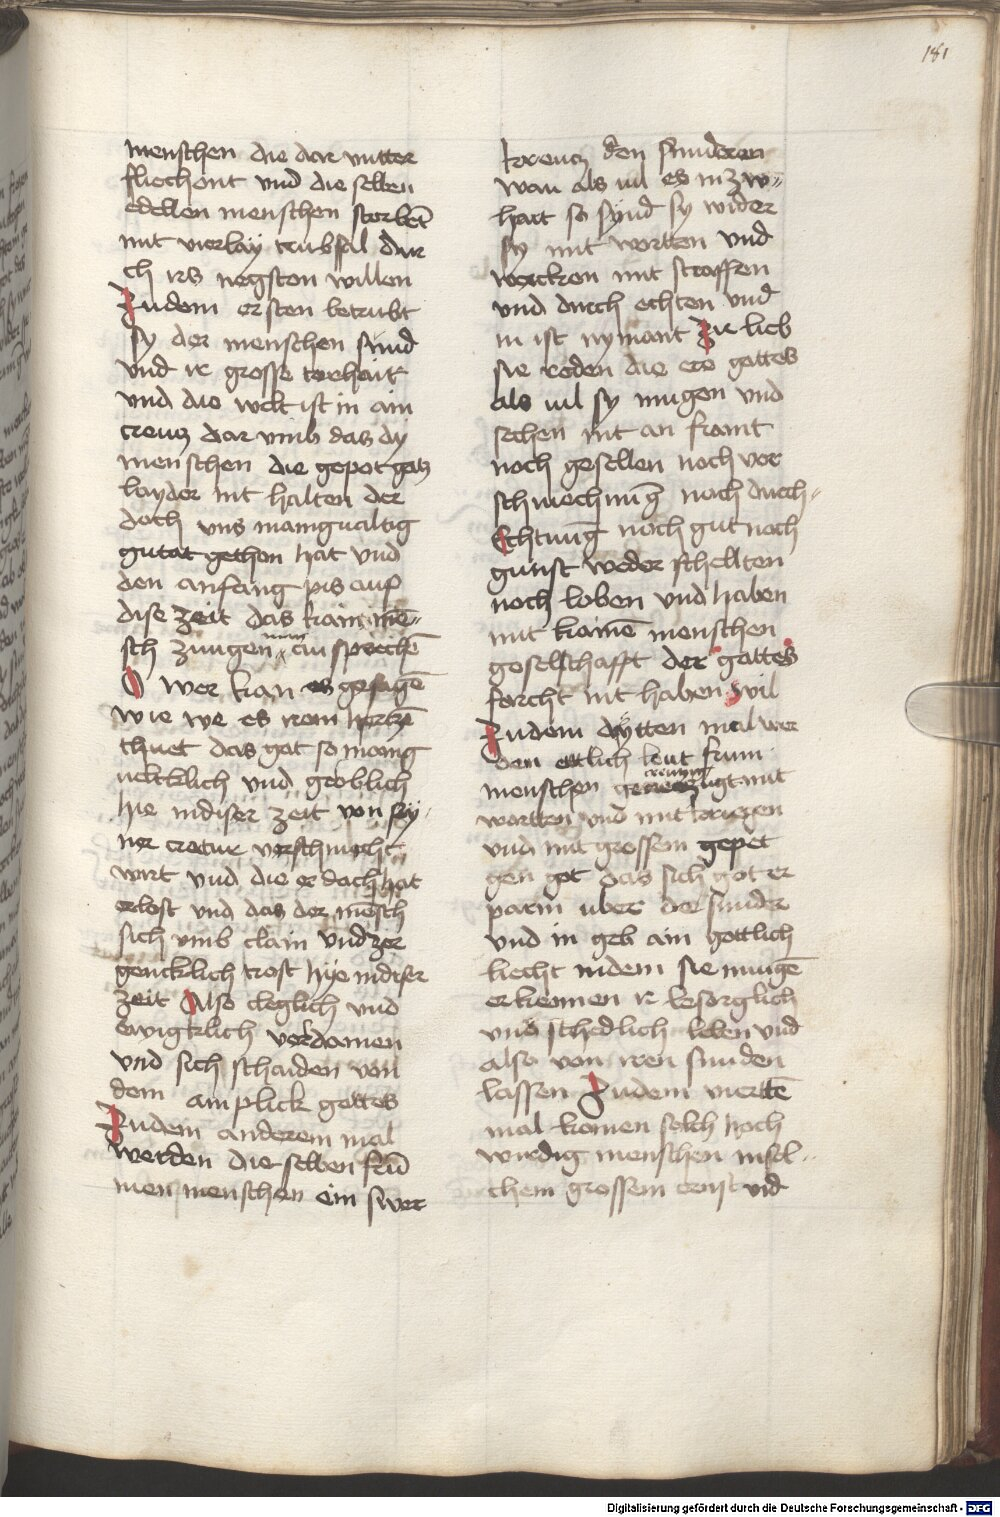 181
menschen die dar vntter
fliechent vnd die selben
edellen menschen sterbēt
mit vierlay trubsal dur
ch irs negsten willen
Zudem ersten betrubt
sy der menschen sund
vnd ir grosse torhait
vnd die welt ist in ain
creucz dar vmb das dy
menschen die gepot gotz
layder nit halten der
doch vns manigualtig
gutat gethon hat vnd
den anfang pis auf
dise zeit das kain mē„
sch zungen nim̄ aus sprechē
O wer kan es gesagē
wie we es irem hertzē
thuet das got so manig
ueltklich vnd groblich
hie in diser zeit von sey
ner creatur verschmecht
wirt vnd die er doch hat
erlost vnd das der mēsch
sich vmb clain vnd zer
gencklich trost hye in diser
zeit Also cleglich vnd
ewigklich verdamen
vnd sich schaiden von
dem anplick gottes
Zudem anderem mal
werden die selben frū
men menschen ein swer
kreucz den sunderen
wan als uil es in zw„
hart so synd sy wider
sy mit wortten vnd
wercken mit straffen
vnd durch echten vnd
in ist nymant zu lieb
sie reden die ere gottes
als uil sy mugen vnd
sechen nit an frant
noch gesellen noch ver
schmechnūg noch durch„
Echtung noch gut noch
gunst weder schellten
noch loben vnd haben
mit kainē menschen
geselschafft der gottes
forcht nit haben wil
Zudem drytten mal wer
den ettlich leut frum
menschen gecreuczigt mit
wortten vnd mit
vnd mit grossem gepet
gen got das sich got er
parm uber der sunder
vnd in geb ain gottlich
liecht in dem sie mugē
erkennen ir besorglich
vnd schedlich leben vnd
also von iren sunden
lassen Zudem viertē
mal komen solch hoch
wirdig menschen in sol„
chem grossem ernst vnd
Digitalisierung gefördert durch die Deutsche Forschungsgemeinschaft - DFG